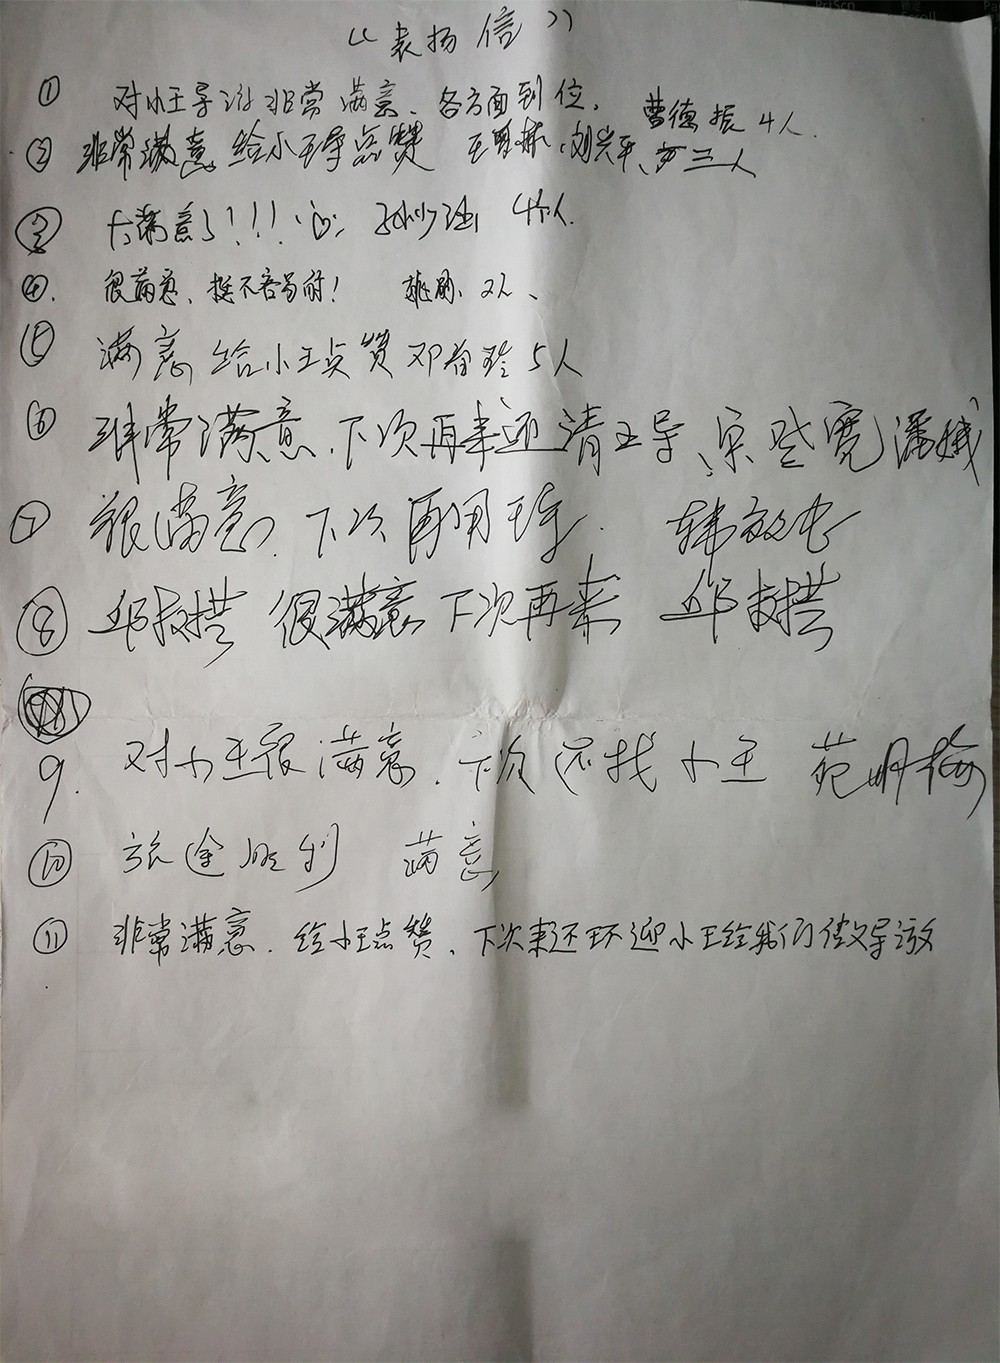 《表扬信》
① 对小王导游非常满意、各方面到位、曹德振 4人.
② 非常满意 给小王导点赞 刘兴平、三人
③ 大满意了！！！ 4人.
④. 很满意、挺不容易的！ 2人、
⑤ 满意 给小王点赞 邓春玲 5人
⑥ 非常满意、下次再来还请王导、潘娥
⑦ 很满意. 下次再用王导.
⑧ 很满意 下次再来
9. 对小王很满意. 下次还找小王 范明梅
⑩ 旅途顺利 满意
⑪ 非常满意. 给小王点赞、下次来还环迎小王给我们做导游